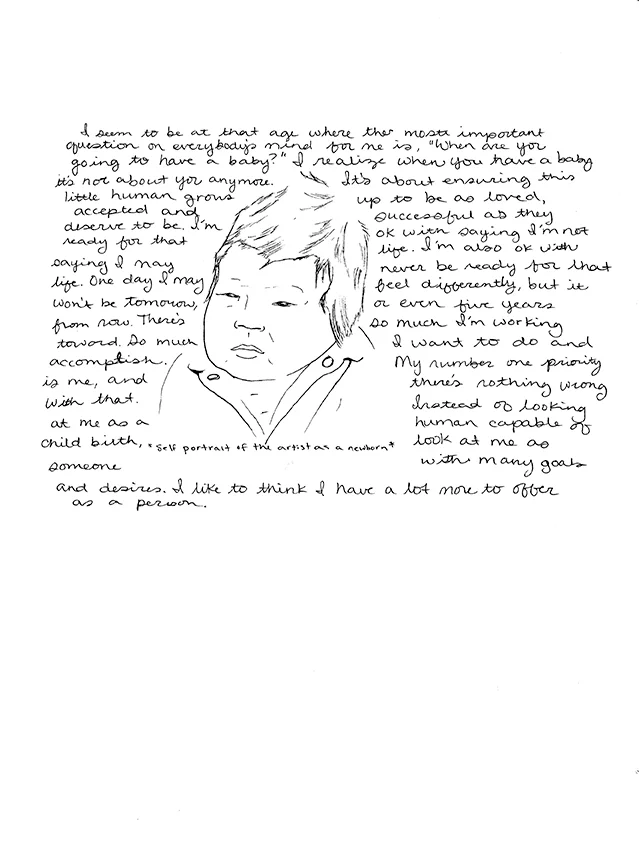 I seem to be at that age where the most important
question on everybody's mind for me is, "When are you
going to have a baby?" I realize when you have a baby
it's not about you anymore. It's about ensuring this
little human grows up to be as loved,
accepted and successful as they
deserve to be. I'm ok with saying I'm not
ready for that life. I'm also ok with
saying I may never be ready for that
life. One day I may feel differently, but it
won't be tomorow, or even five years
from now. There's so much I'm working
toward. So much I want to do and
accomplish. My number one priority
is me, and there's nothing wrong
with that. Instead of looking
at me as a human capable of
child birth, look at me as
*Self portrait of the artist as a newborn*
someone with many goals
and desires. I like to think I have a lot more to offer
as a person.